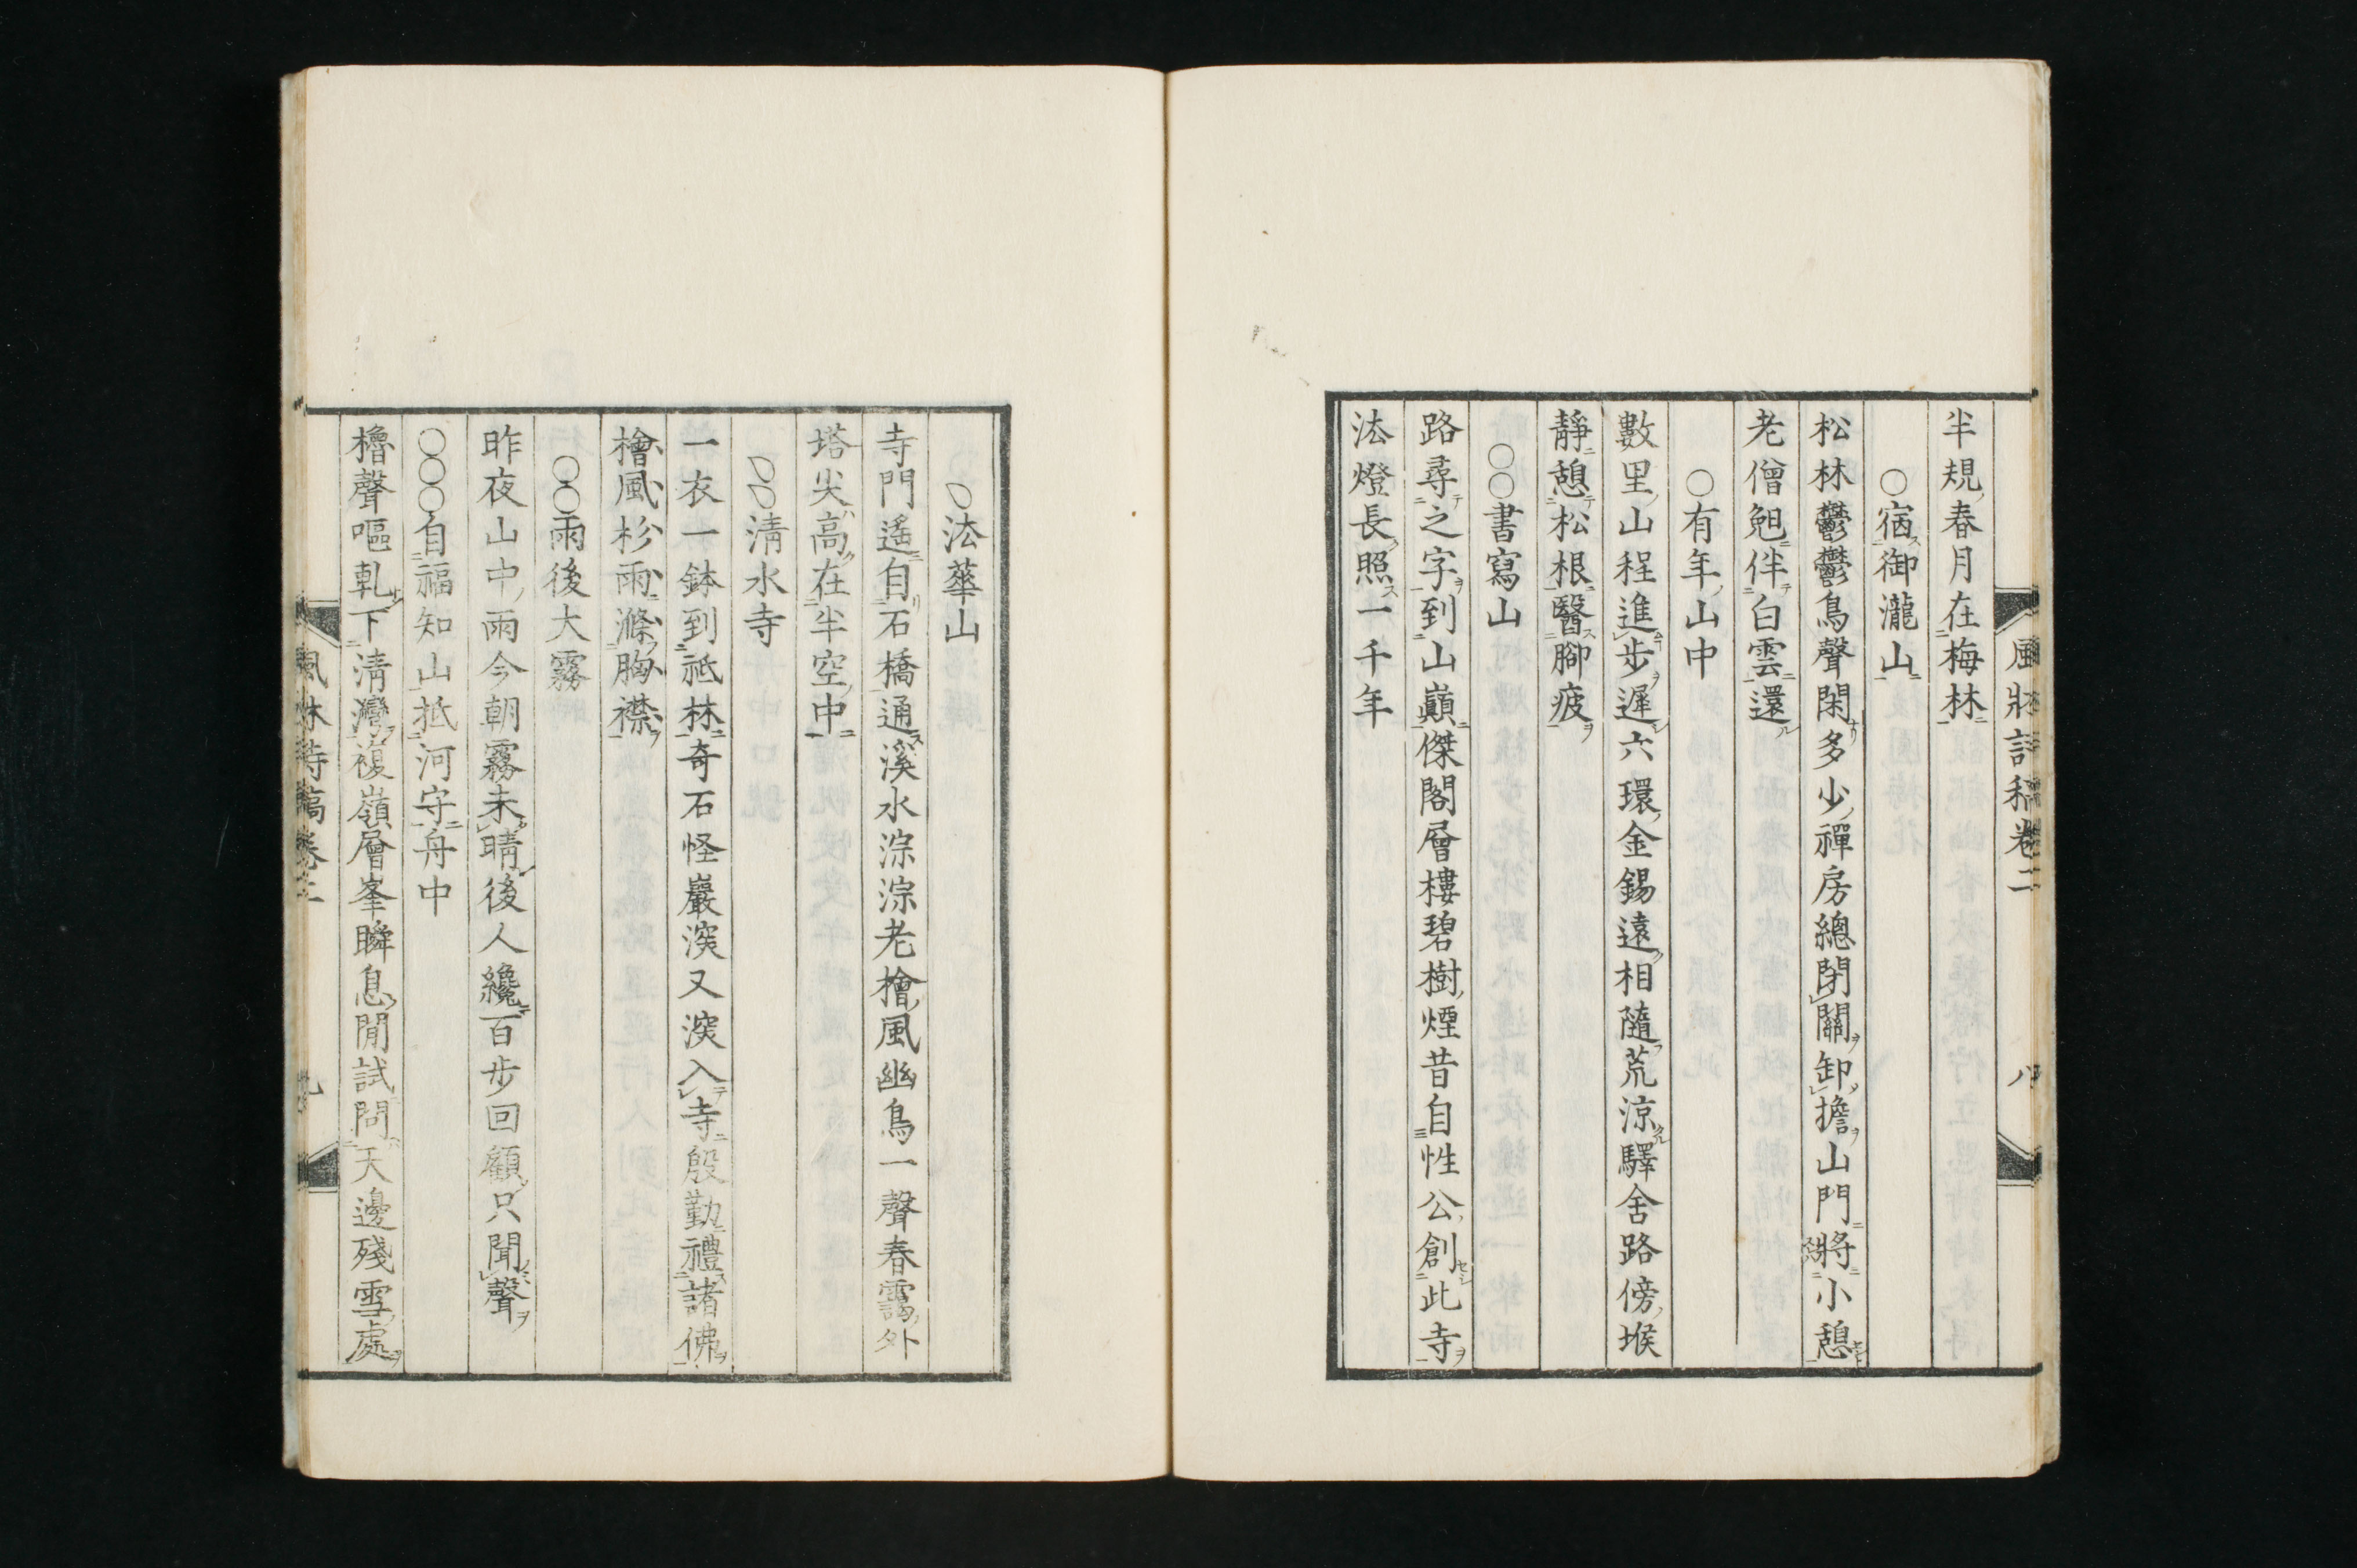 半規春月在梅林
○宿御瀧山
松林鬱鬱鳥聲閑多少禪房總閉關卸擔山門將小憩
老僧皃伴白雲還
○有年山中
數里山程進步遲六環金錫遠相隨荒涼驛舍路傍堠
靜憩松根醫腳疲
○○書寫山
路尋之字到山巓傑閣層樓碧樹煙昔自性公創此寺
法燈長照一千年
法華山
寺門遙自石橋通溪水淙淙老檜風幽鳥一聲春靄外
塔尖高在半空中
清水寺
一衣一鉢到祗林奇石怪巖深又深入寺殷勤禮諸佛
檜風杉雨滌胸襟
○○雨後大霧
昨夜山中雨今朝霧未晴後人纔百步回顧只聞聲
○○○自福知山抵河守舟中
櫓聲嘔軋下清灣複嶺層峯瞬息閒試問天邊殘雪處
卷二
八